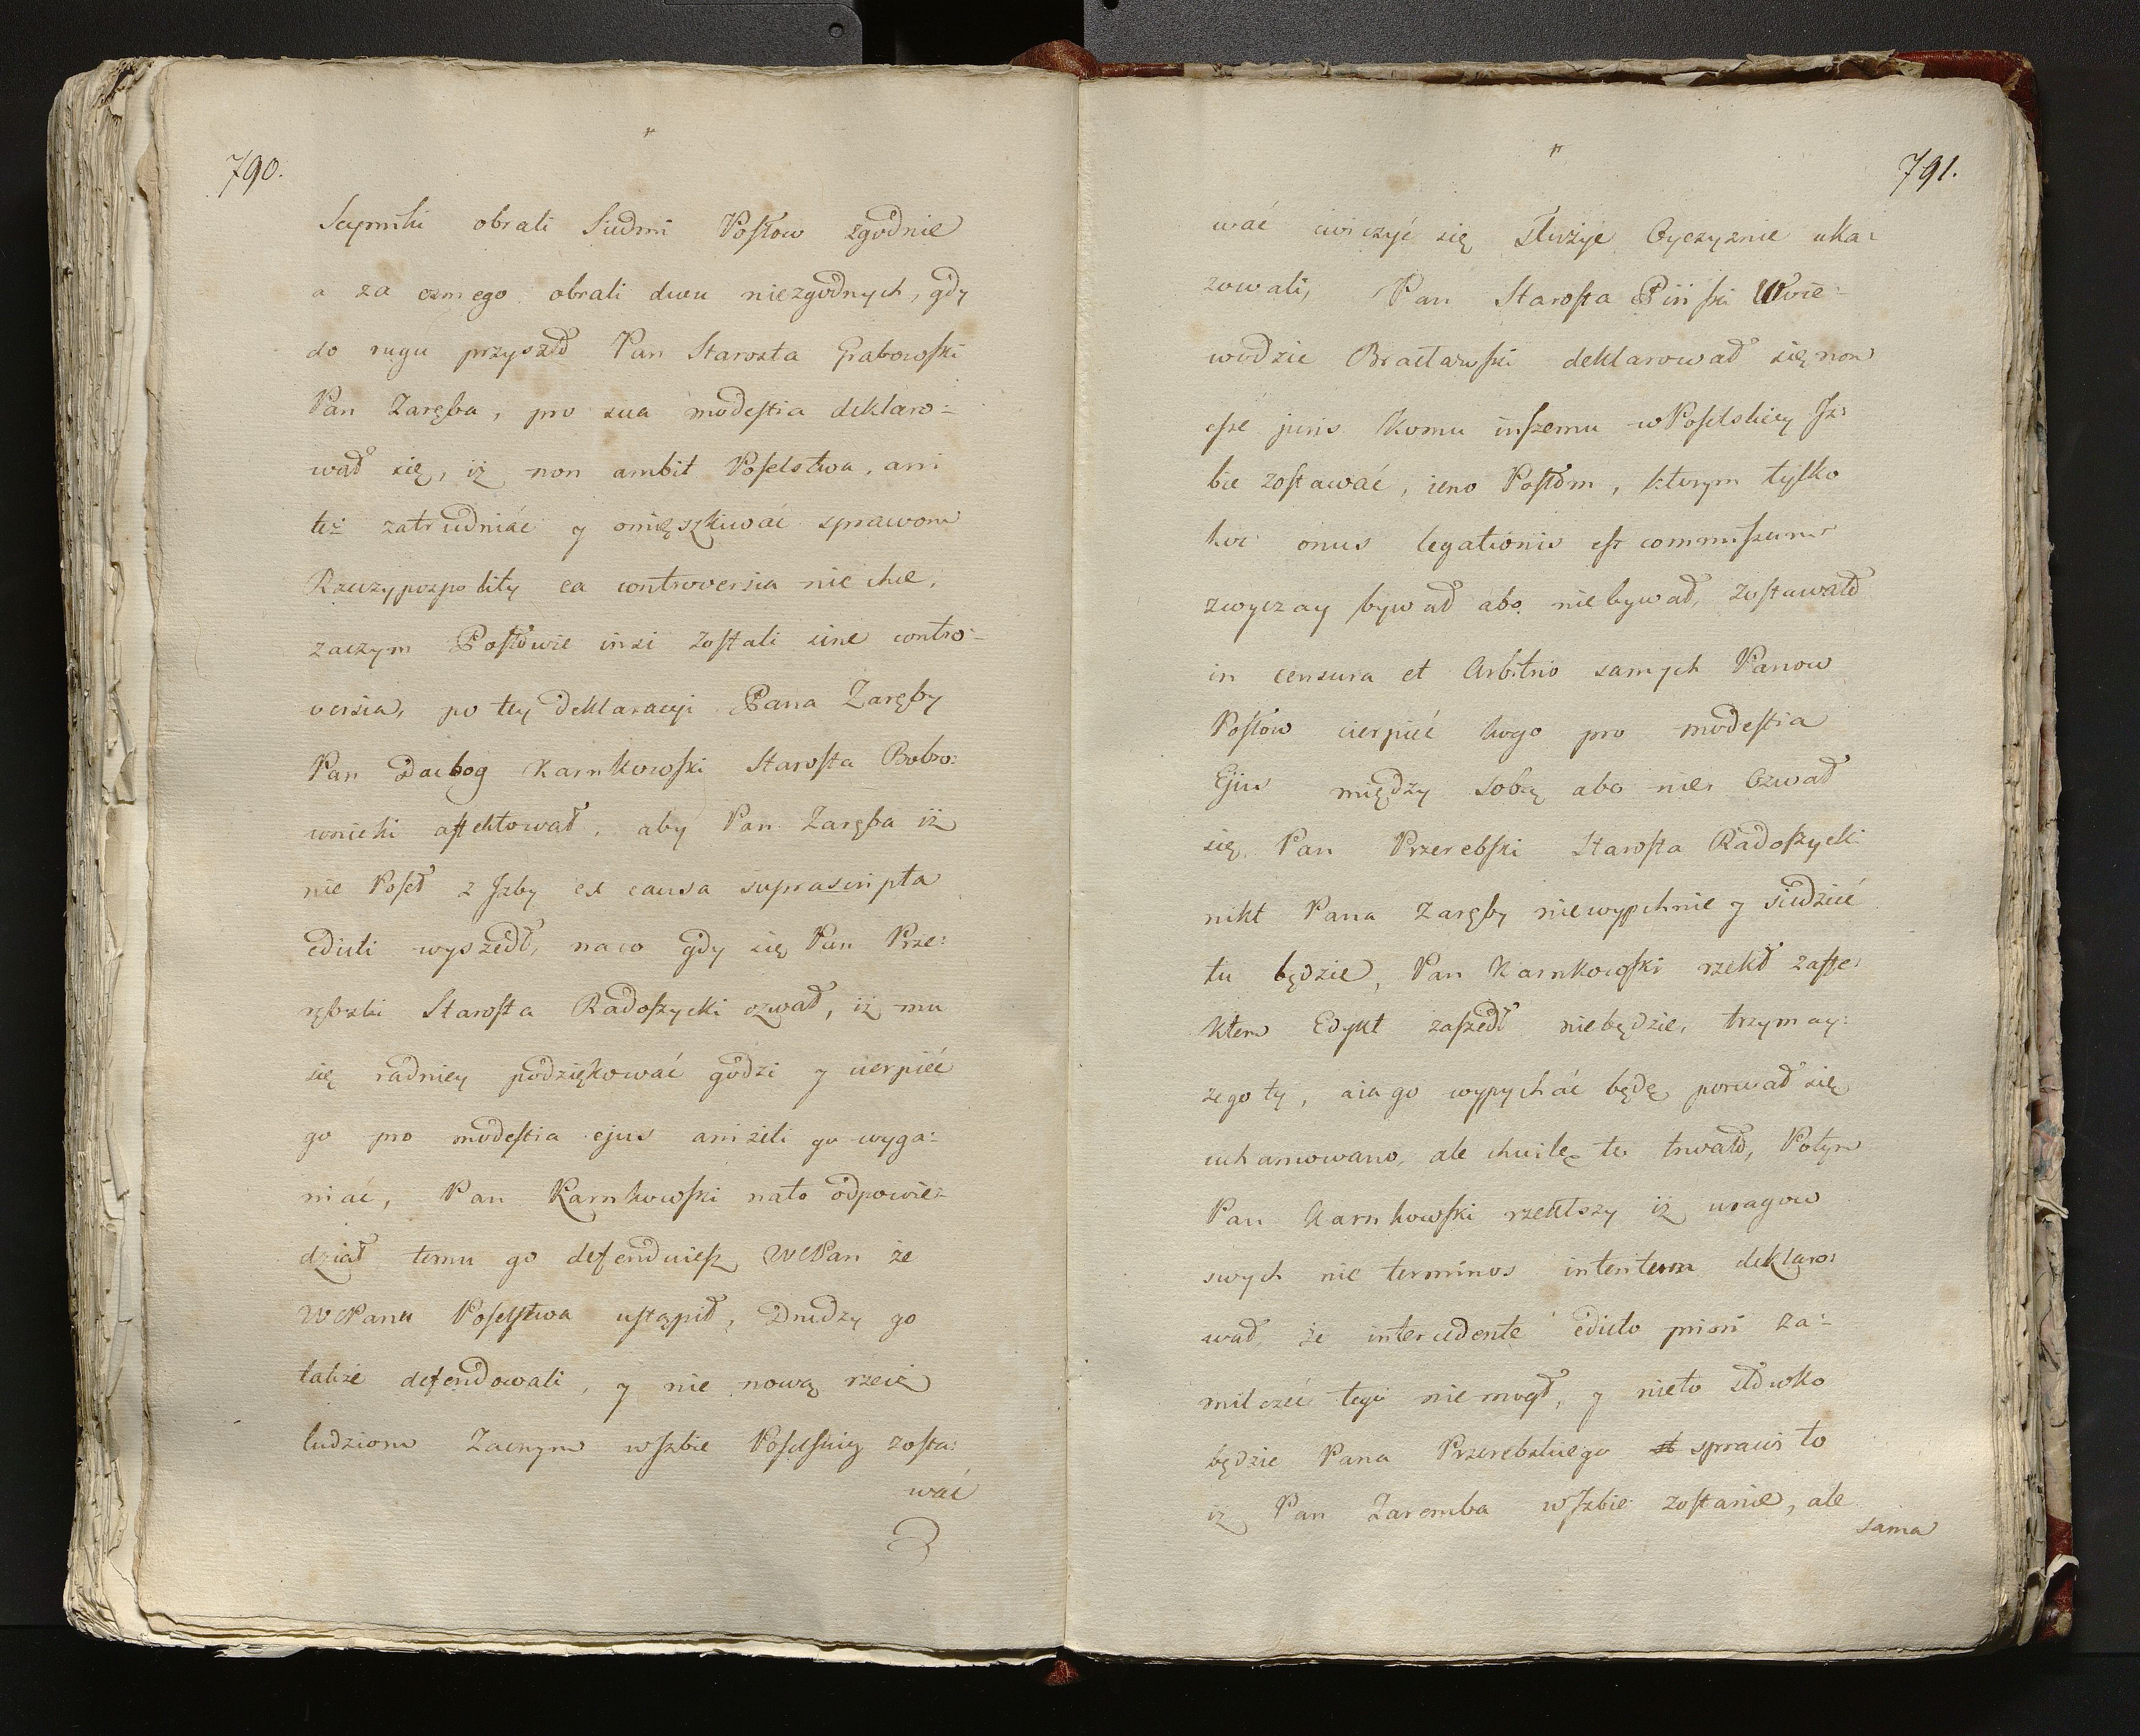 790.
Seymiki obrali Siedmi Posłow zgodnie
a za osmego obrali dwu niezgodnych, gdy
do rugu przyszło Pan Starosta Grabowski
Pan Zaręba, pro sua modestia deklaro=
wał się, iż non ambit Poselstwa, ani
też zatrudniać y omięszkiwać sprawom
Rzeczypospolity ea controversia nie chce,
zaczym Posłowie insi zostali sine contro=
versia, po tey deklaracyi Pana Zaręby
Pan Dacbog Karnkowski Starosta Bobro=
wnicki affektował, aby Pan Zaręba iż
nie Poseł z Jzby ex causa suprascripta
edicti wyszedł, naco gdy się Pan Prze=
rębski Starosta Radoszycki ozwał, iż mu
się radniey podziękować godzi y cierpieć
go pro modestia ejus aniżeli go wyga=
niać, Pan Karnkowski nato odpowie=
dział temu go defenduiesz WMPan że
WMPanu Poselstwa ustąpił, Drudzy go
także defendowali, y nie nową rzecz
ludziom Zacnym wJzbie Poselskiey zosta=
wać
791.
wać cwiczyć się służyć Oyczyznie uka=
zowali, Pan Starosta Piński Woie=
wodzic Bracławski deklarował się non
esse juris komu inszemu wPoselskiey Jz=
bie zostawać, ieno Posłom, ktorym tylko
hoc onus legationis est commissum
zwyczay bywał abo niebywał, zostawało
in censura et Arbitrio samych Panow
Posłow cierpieć kogo pro modestia
Ejus między sobą abo nie, Ozwał
się Pan Przerebski Starosta Radoszycki
nikt Pana Zaręby niewypchnie y siedzieć
tu będzie, Pan Karnkowski rzekł zaffe=
ktem Edykt zaszedł niebędzie, trzymay=
żego ty, aia go wypychać będę, porwał się
uchamowano, ale chwilę to trwało, Potym
Pan Karnkowski rzekłszy iż uragow
swych nie terminos intentem deklaro=
wał, że intercedente edicto priori za=
milczeć tego niemogł, y nieto słowko
będzie Pana Przerebskiego sprawi to
iż Pan Zaremba wJzbie zostanie, ale
sama